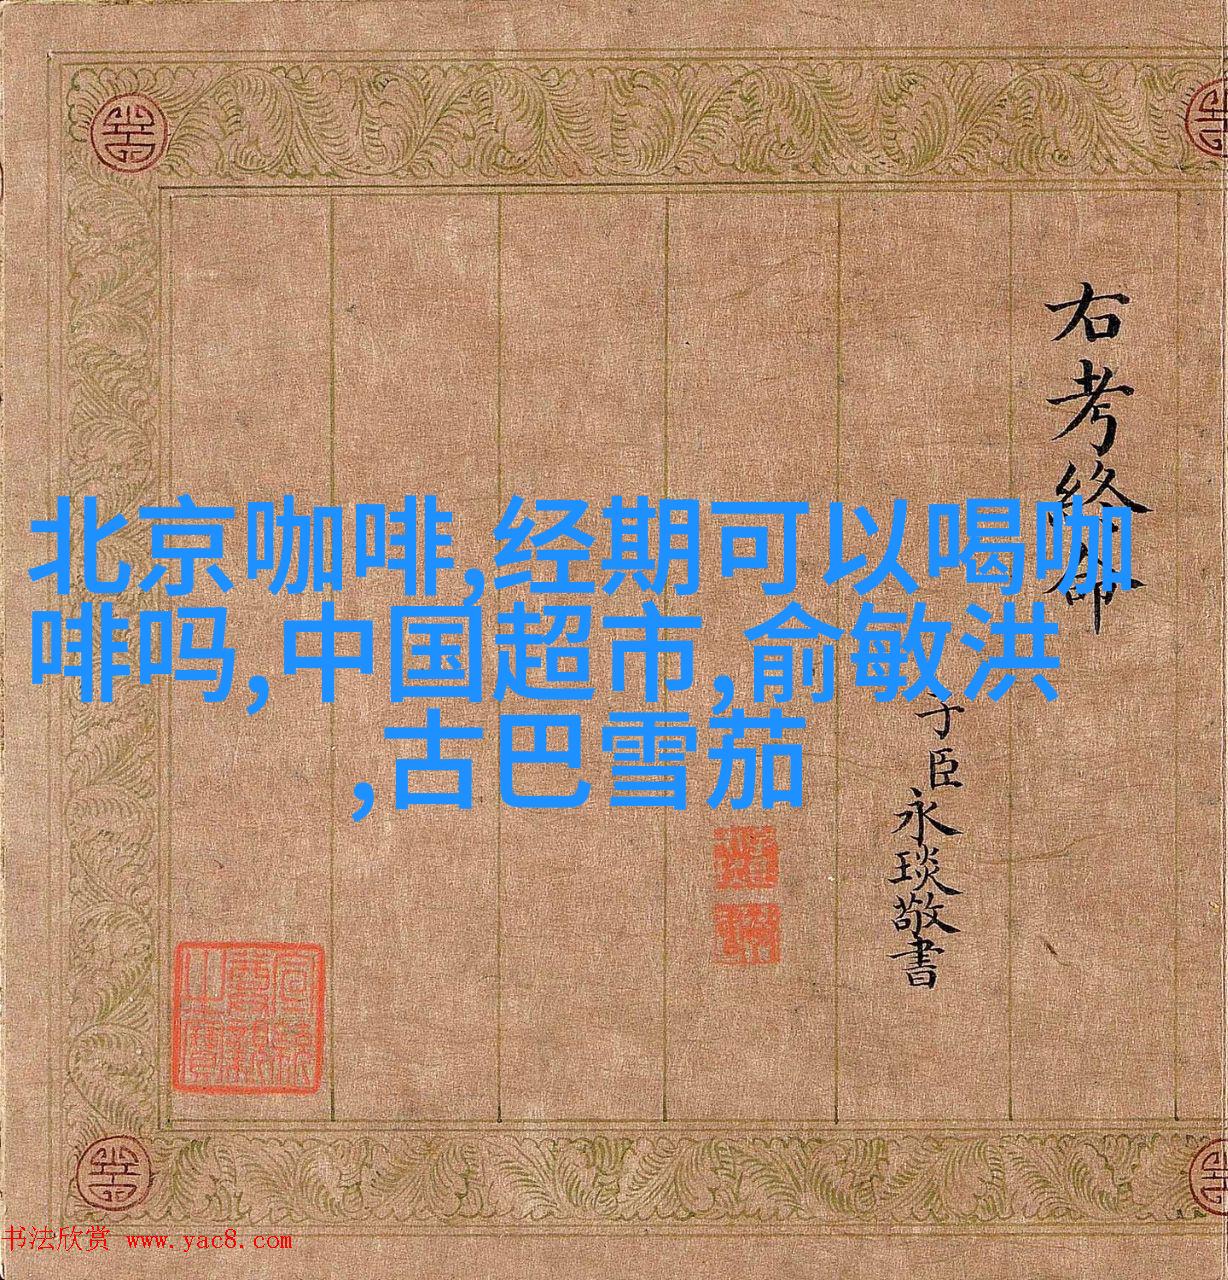 北京咖啡,经期可以喝咖
啡吗,中国超市,俞敏洪
,古巴雪茄
右考终命
子臣永琰敬書
书法欣赏 www.yac8.com